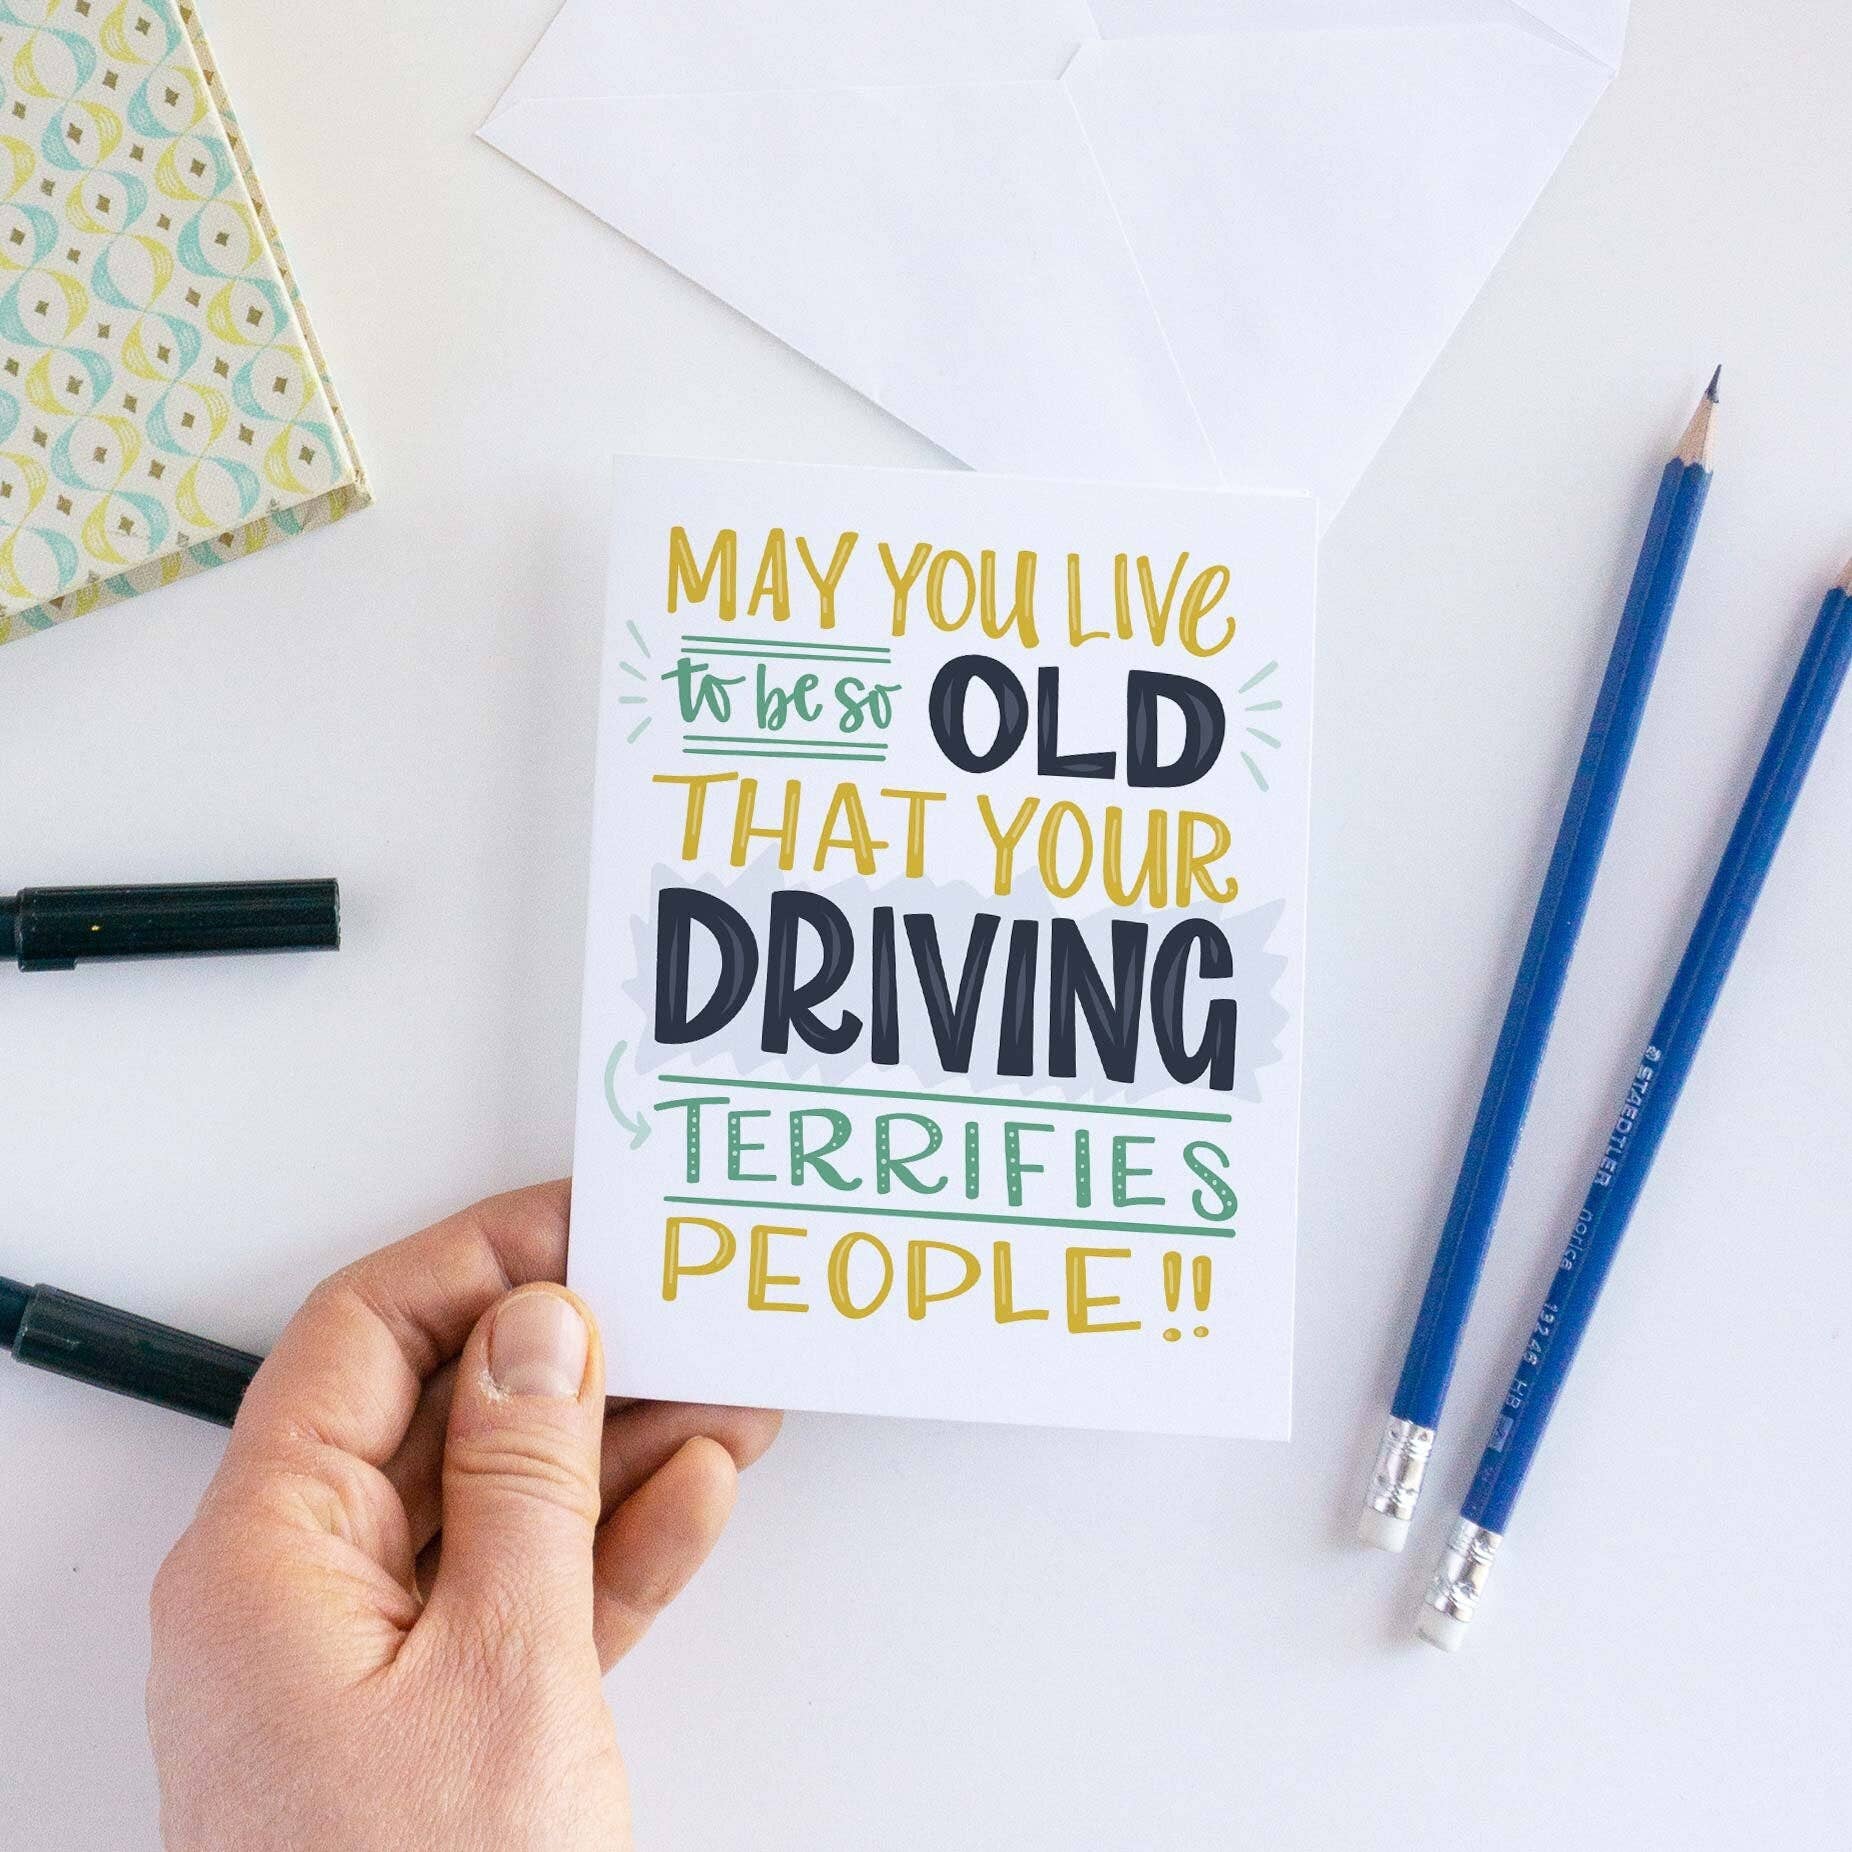 MAY YOU LIVE
to be so OLD
THAT YOUR
DRIVING
TERRIFIES
PEOPLE!!
STAEDTLER norica 132 46 HB 2